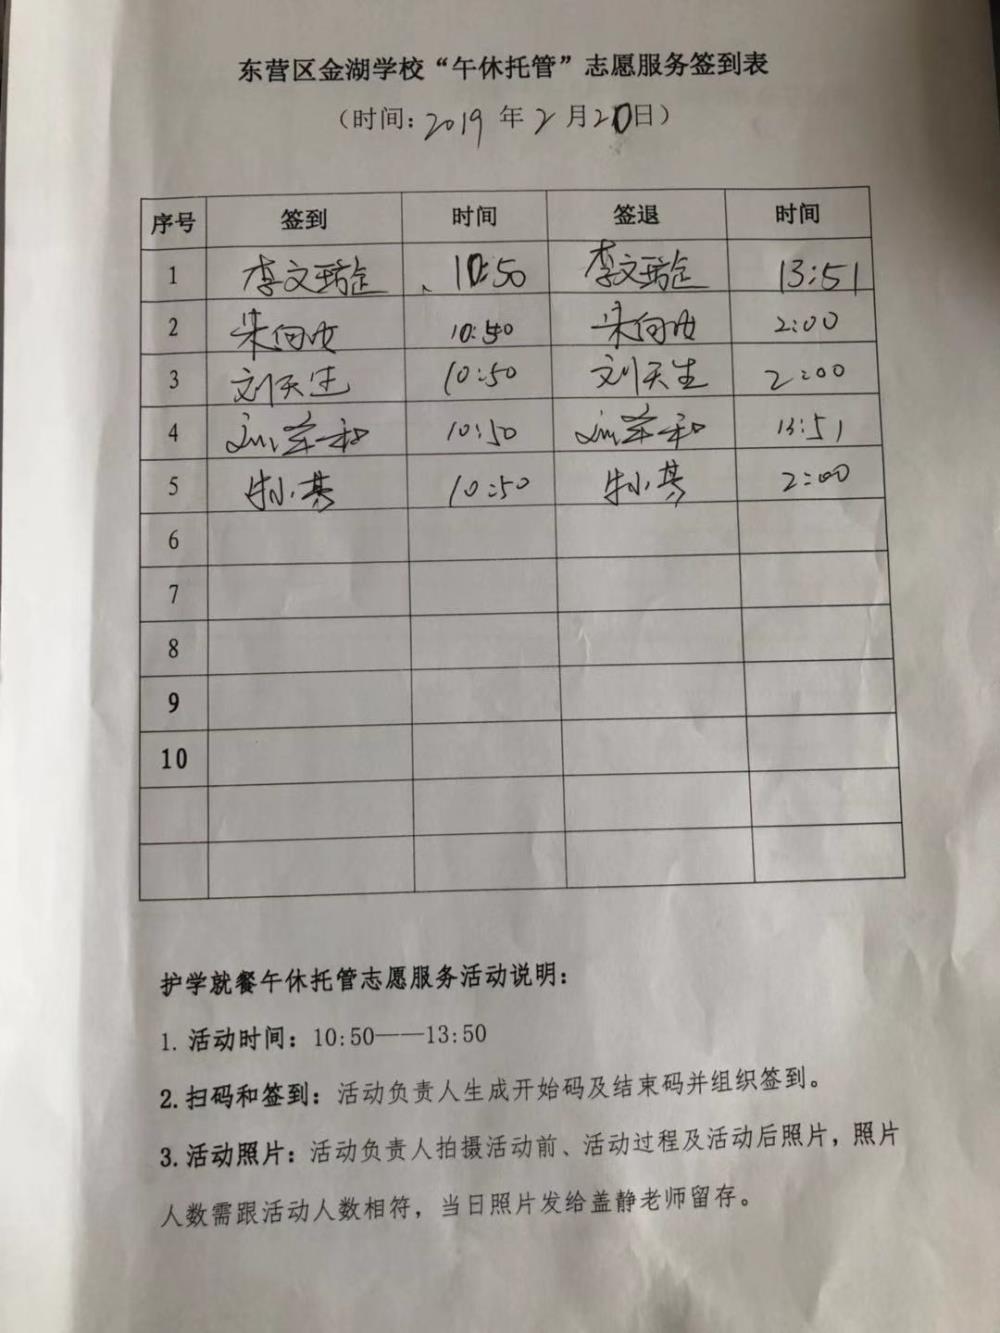 东营区金湖学校“午休托管”志愿服务签到表
（时间：2019 年 2 月 20日）
序号 签到 时间 签退 时间
1 李文 10:50 李文 13:51
2 宋向 10:50 宋向 2:00
3 刘天生 10:50 刘天生 2:00
4 10:50 13:51
5 朱小 10:50 朱小 2:00
6
7
8
9
10
护学就餐午休托管志愿服务活动说明：
1. 活动时间：10:50——13:50
2. 扫码和签到：活动负责人生成开始码及结束码并组织签到。
3. 活动照片：活动负责人拍摄活动前、活动过程及活动后照片，照片
人数需跟活动人数相符，当日照片发给盖静老师留存。